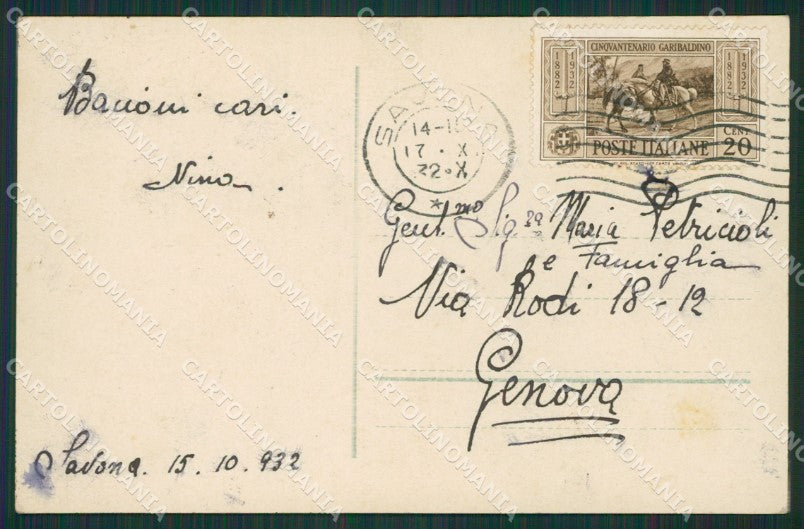 Bacioni cari.
Nino.
Savona. 15.10.932
CINQVANTENARIO GARIBALDINO
1882 1932 1882 1932
CENT
POSTE ITALIANE 20
SAVONA
14-1
17 · X
32 · X
*
Gent.mo Sig.ra Maria Petricioli
e Famiglia
Via Rodi 18-12
Genova
CARTOLINOMANIA